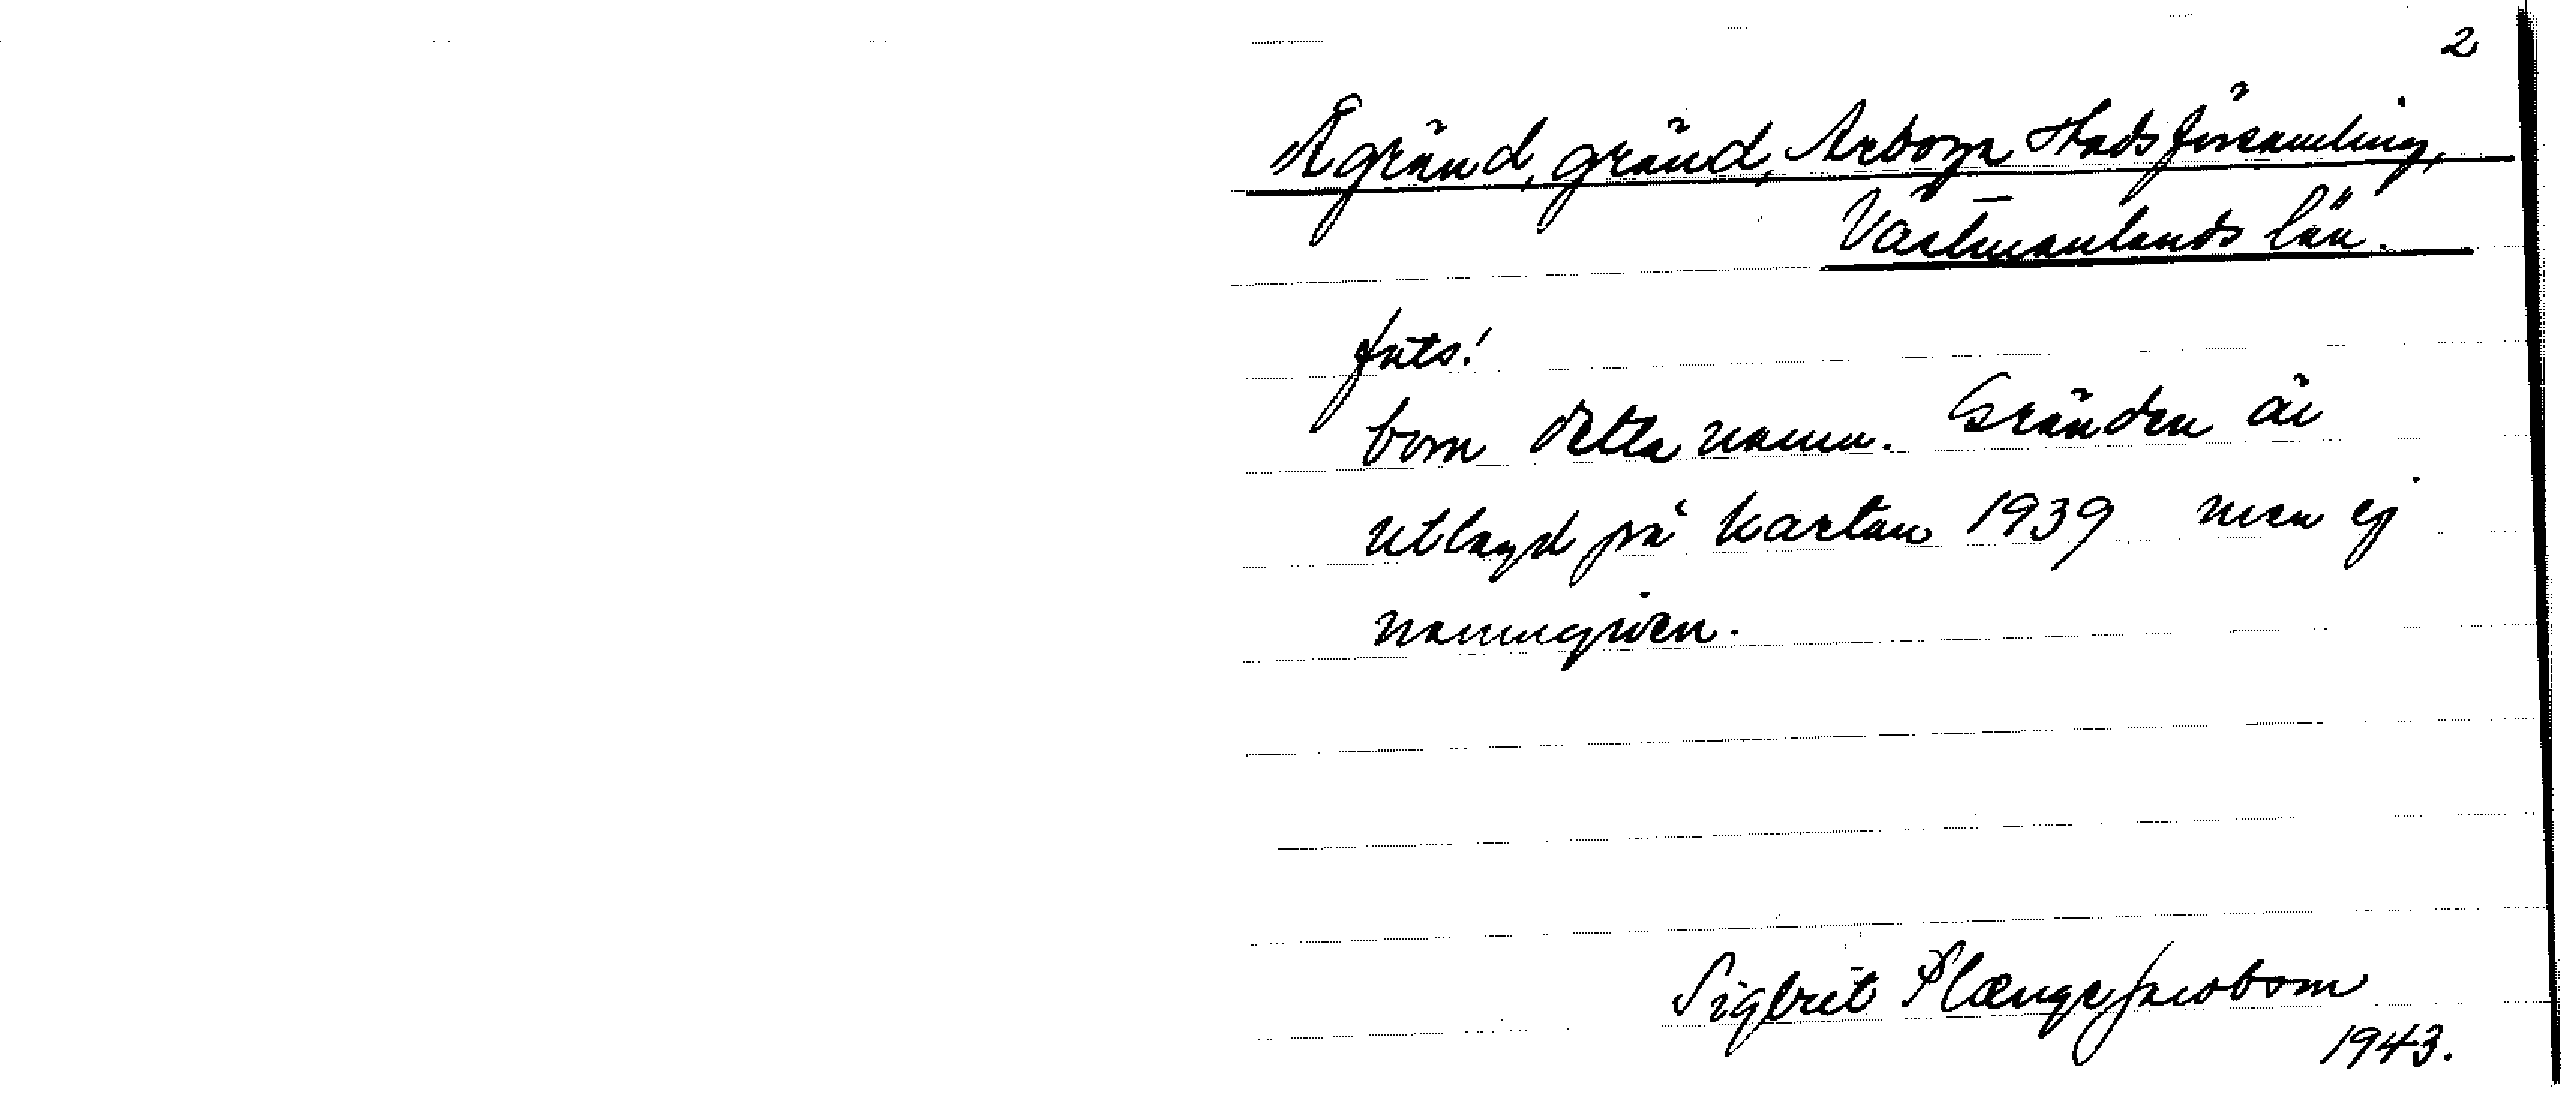 2
Ågränd, gränd, Arboga stadsförsamling,
Västmanlands län.
forts!
bom detta namn. Gränden är
utlagd på kartan 1939 men ej
namngiven.
Sigbrit Plænge Jacobson
1943.